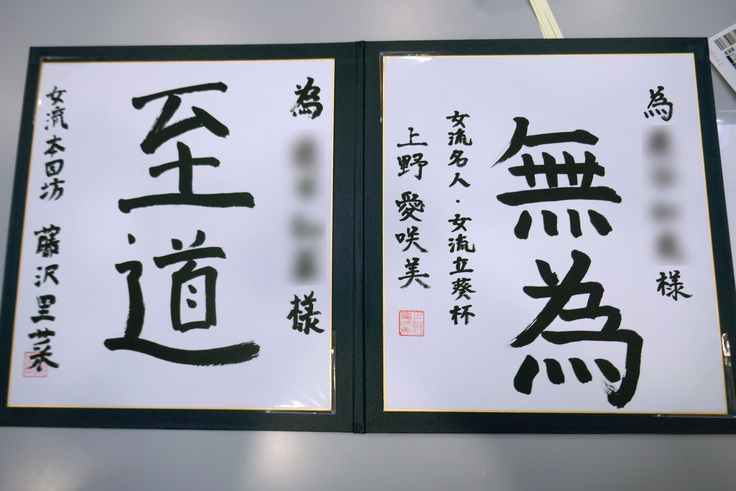 為
様
無為
女流名人・女流立葵杯
上野愛咲美
為
様
至道
女流本因坊
藤沢里菜